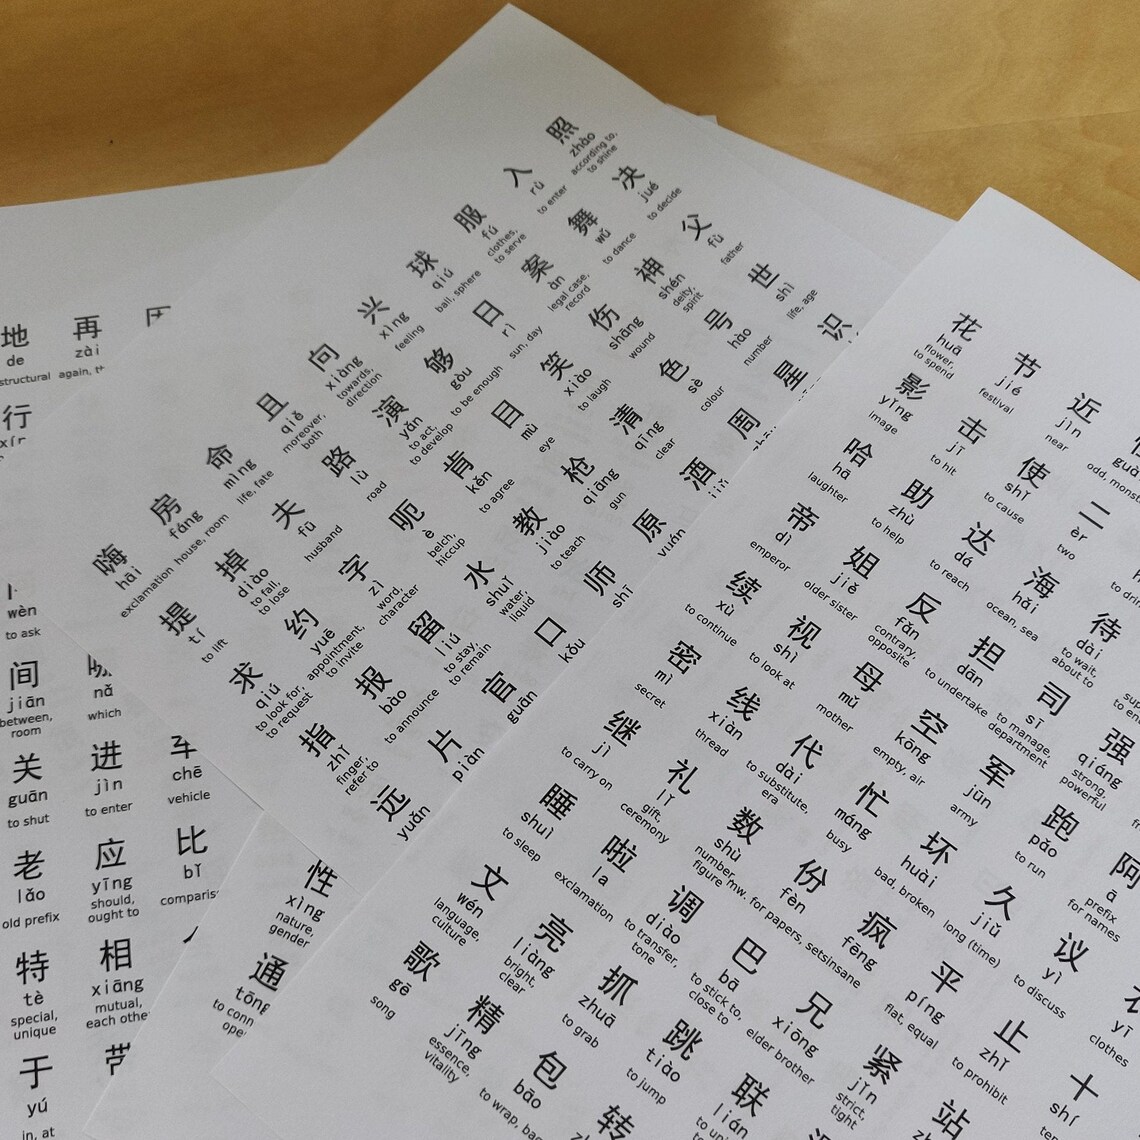 地 再
de zài
structural again,
行
wèn
to ask
间
jiān nǎ
between, which
room
关 进 车
guān jìn chē
to shut to enter vehicle
老 应 比
lǎo yīng bǐ
old prefix should,
ought to
特 相
tè xiāng
special, mutual,
unique each other
于 带
yú
in, at
嗨 房 命 且 向 兴 球 服 入 照
hāi fáng mìng qiě xiàng xìng qiú fú rù zhào
exclamation house, room life, fate moreover, towards, feeling ball, sphere clothes, to enter according to,
both direction to serve to shine
提 掉 夫 路 演 够 日 案 舞 决
tí diào fū lù yǎn gòu rì àn wǔ jué
to lift to fall, husband road to act, to be enough sun, day legal case, to dance to decide
to lose to develop record
求 约 字 呃 肯 目 笑 伤 神 父
qiú yuē zì è kěn mù xiào shāng shén fù
to look for, appointment, word, belch, to agree eye to laugh wound deity, father
to request to invite character hiccup spirit
指 报 留 水 教 枪 清 色 号 世
zhǐ bào liú shuǐ jiào qiāng qīng sè hào shì
finger, to announce to stay, water, to teach gun clear colour number life, age
refer to to remain liquid
远 片 官 口 师 原 酒 周 星 识
yuǎn piàn guān kǒu shī yuán
性
xìng
nature,
gender
通
tōng
to conn
ope
歌 文 睡 继 密 续 帝 哈 影 花
gē wén shuì jì mì xù dì hā yǐng huā
song language, to sleep to carry on secret to continue emperor laughter image flower,
culture to spend
精 亮 啦 礼 线 视 姐 助 击 节
jīng liàng la lǐ xiàn shì jiě zhù jī jié
essence, bright, exclamation gift, thread to look at older sister to help to hit festival
vitality clear ceremony
包 抓 调 数 代 母 反 达 使 近
bāo zhuā diào shù dài mǔ fǎn dá shǐ jìn
to wrap, bag to grab to transfer, number, to substitute, mother contrary, to reach to cause near
tone figure era opposite
转 跳 巴 份 忙 空 担 海 二
tiào bā fèn máng kōng dān hǎi èr
to jump to stick to, mw. for papers, sets busy empty, air to undertake ocean, sea two odd, monst
close to
联 兄 疯 坏 军 司 待
lián xiōng fēng huài jūn sī dài
elder brother insane bad, broken army to manage, to wait,
department about to
紧 平 久 跑 强
jǐn píng jiǔ pǎo qiáng
strict, flat, equal long (time) to run strong,
tight powerful
站 止 议 阿
zhǐ yì ā
to prohibit to discuss prefix
for names
十 衣
shí yī
clothes